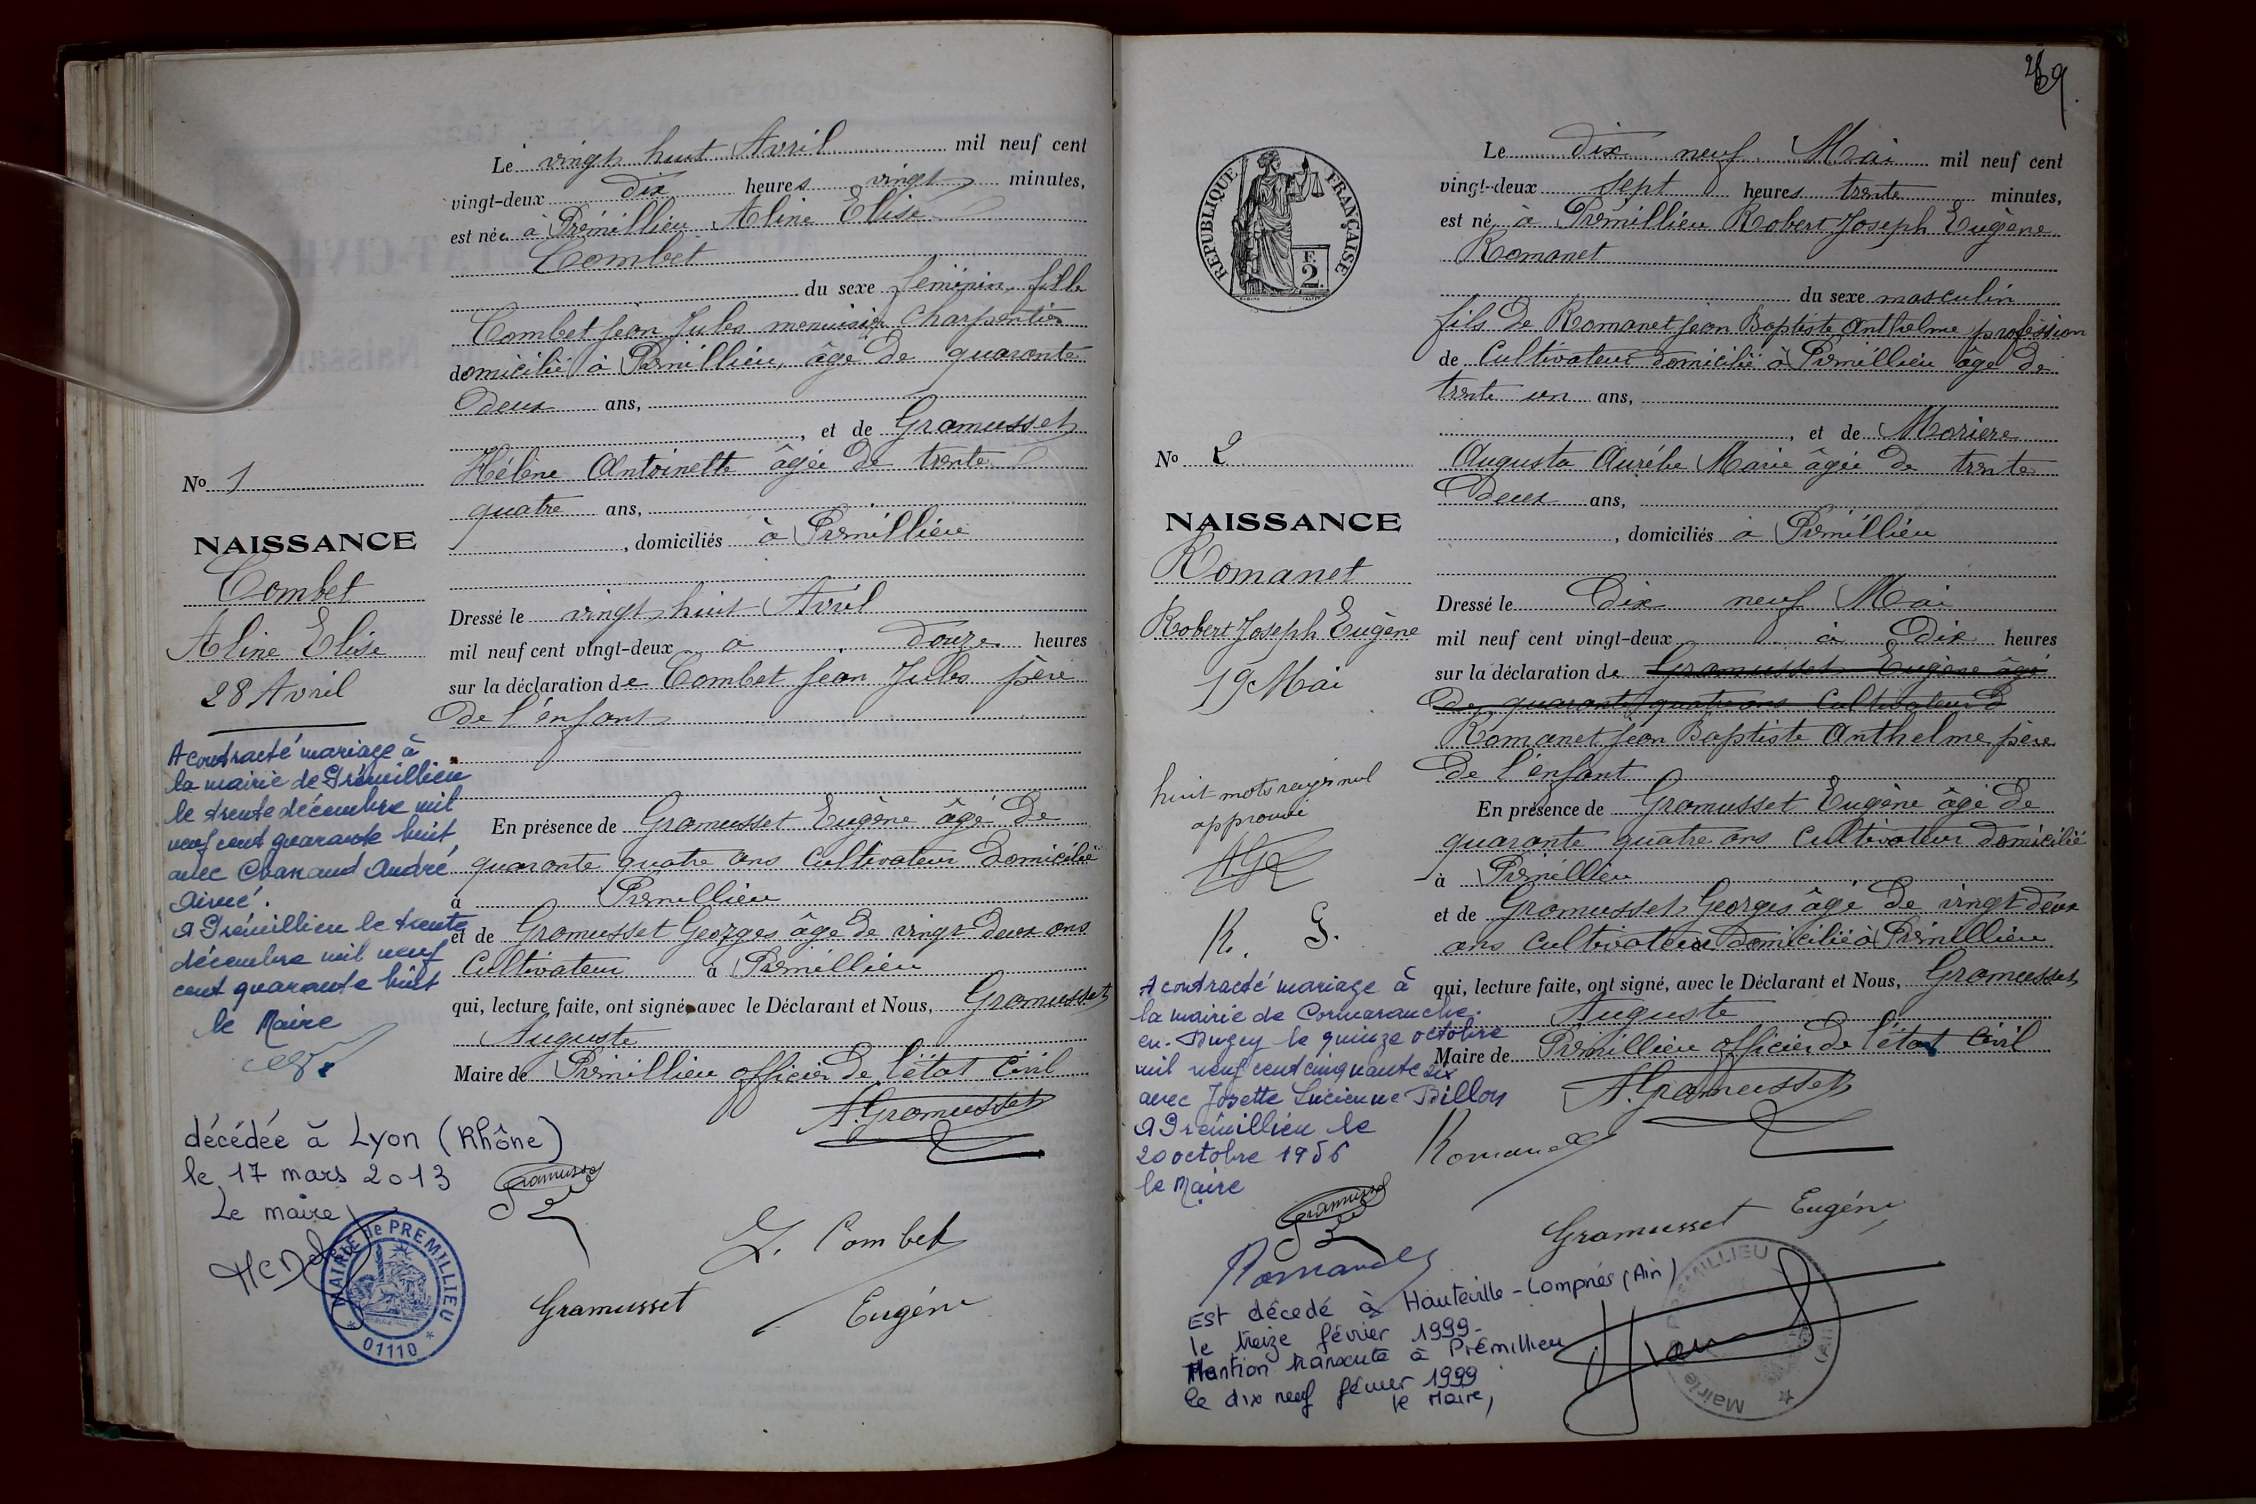 Le vingt huit Avril mil neuf cent
vingt-deux dix heures vingt minutes,
est née à Prémillieu Aline Elise
Combet
du sexe féminin fille
Combet Jean Jules menuisier charpentier
domicilié à Prémillieu, âgé de quarante
deux ans,
, et de Gramusset
Hélène Antoinette âgée de trente
quatre ans,
, domiciliés à Prémillieu
Dressé le vingt huit Avril
mil neuf cent vingt-deux à douze heures
sur la déclaration de Combet Jean Jules père
de l'enfant
En présence de Gramusset Eugène âgé de
quarante quatre ans cultivateur domicilié
à Prémillieu
et de Gramusset Georges âgé de vingt deux ans
cultivateur à Prémillieu
qui, lecture faite, ont signé avec le Déclarant et Nous, Gramusset
Auguste
Maire de Prémillieu officier de l'état civil
A. Gramusset
Gramusset
Combet
Gramusset Eugène
No 1
NAISSANCE
Combet
Aline Elise
28 Avril
A contracté mariage à
la mairie de Prémillieu
le trente décembre mil
neuf cent quarante huit
avec Chanaud André
Aimé.
A Prémillieu le trente
décembre mil neuf
cent quarante huit
le Maire
décédée à Lyon (Rhône)
le 17 mars 2013
Le maire
MAIRIE de PREMILLIEU
* 01110 *
269
RÉPUBLIQUE FRANÇAISE
F.
2.
Le dix neuf Mai mil neuf cent
vingt-deux sept heures trente minutes,
est né à Prémillieu Robert Joseph Eugène
Romanet
du sexe masculin
fils de Romanet Jean Baptiste Anthelme profession
de cultivateur domicilié à Prémillieu âgé de
trente un ans,
, et de Moriere
Augusta Aurélie Marie âgée de trente
deux ans,
, domiciliés à Prémillieu
Dressé le Dix neuf Mai
mil neuf cent vingt-deux à dix heures
sur la déclaration de Gramusset Eugène âgé
de quarante quatre ans cultivateur d
Romanet Jean Baptiste Anthelme père
de l'enfant
En présence de Gramusset Eugène âgé de
quarante quatre ans cultivateur domicilié
à Prémillieu
et de Gramusset Georges âgé de vingt deux
ans cultivateur domicilié à Prémillieu
qui, lecture faite, ont signé, avec le Déclarant et Nous, Gramusset
Auguste
Maire de Prémillieu officier de l'état civil
A. Gramusset
Romanet
Gramusset Eugène
No 2
NAISSANCE
Romanet
Robert Joseph Eugène
19 Mai
huit mots rayés nul
approuvé
A.G.
R. G.
A contracté mariage à
la mairie de Cormaranche.
en-Bugey le quinze octobre
mil neuf cent cinquante six
avec Josette Lucienne Billon
A Prémillieu le
20 octobre 1956
le Maire
Gramusset
Romanet
Est décédé à Hauteville-Lompnès (Ain)
le treize février 1999.
Mention transcrite à Prémillieu
le dix neuf février 1999
le Maire,
Mairie de PREMILLIEU (Ain)